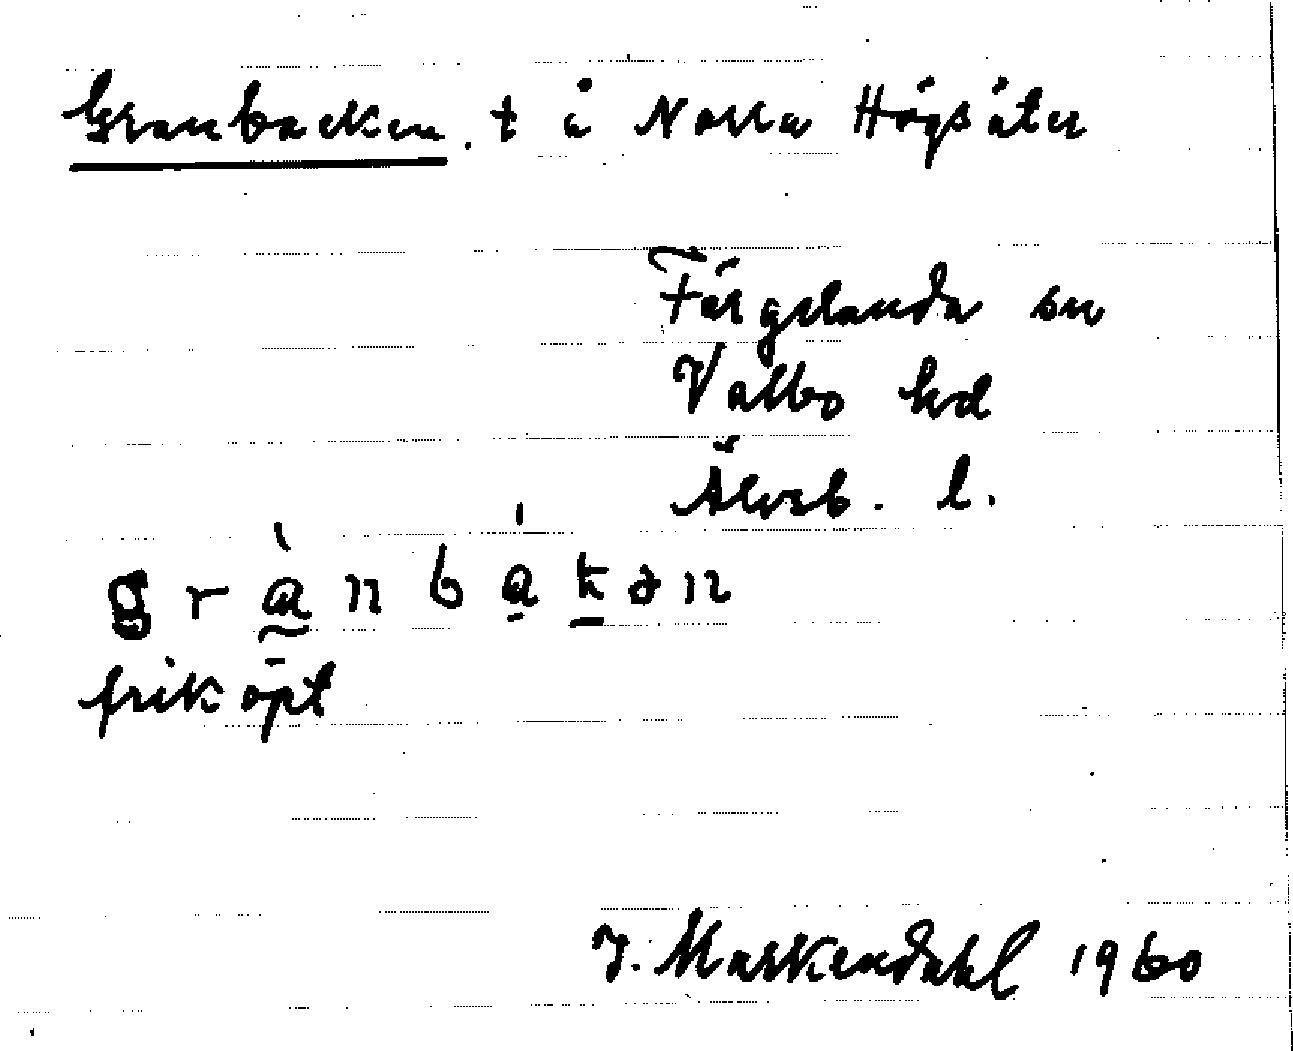 Granbacken, t å Norra Högsäter
Färgelanda sn
Valbo hd
Älvsb. l.
g r à n b á k ə n
friköpt
J. Markendahl 1960